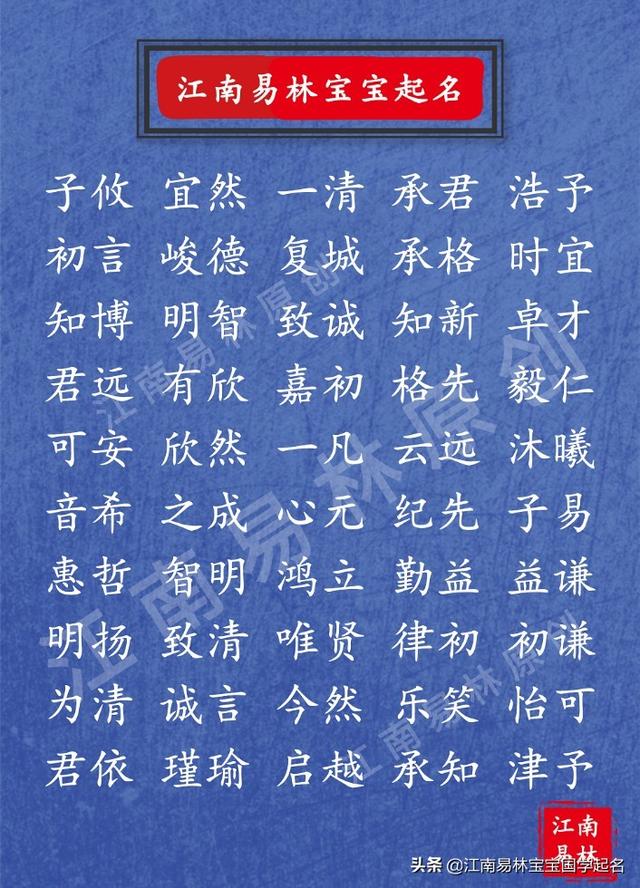 江南易林宝宝起名
子攸 宜然 一清 承君 浩予
初言 峻德 复城 承格 时宜
知博 明智 致诚 知新 卓才
君远 有欣 嘉初 格先 毅仁
可安 欣然 一凡 云远 沐曦
音希 之成 心元 纪先 子易
惠哲 智明 鸿立 勤益 益谦
明扬 致清 唯贤 律初 初谦
为清 诚言 今然 乐笑 怡可
君依 瑾瑜 启越 承知 津予
江南易林原创
江南易林原创
江南易林原创
江南
易林
头条 @江南易林宝宝国学起名